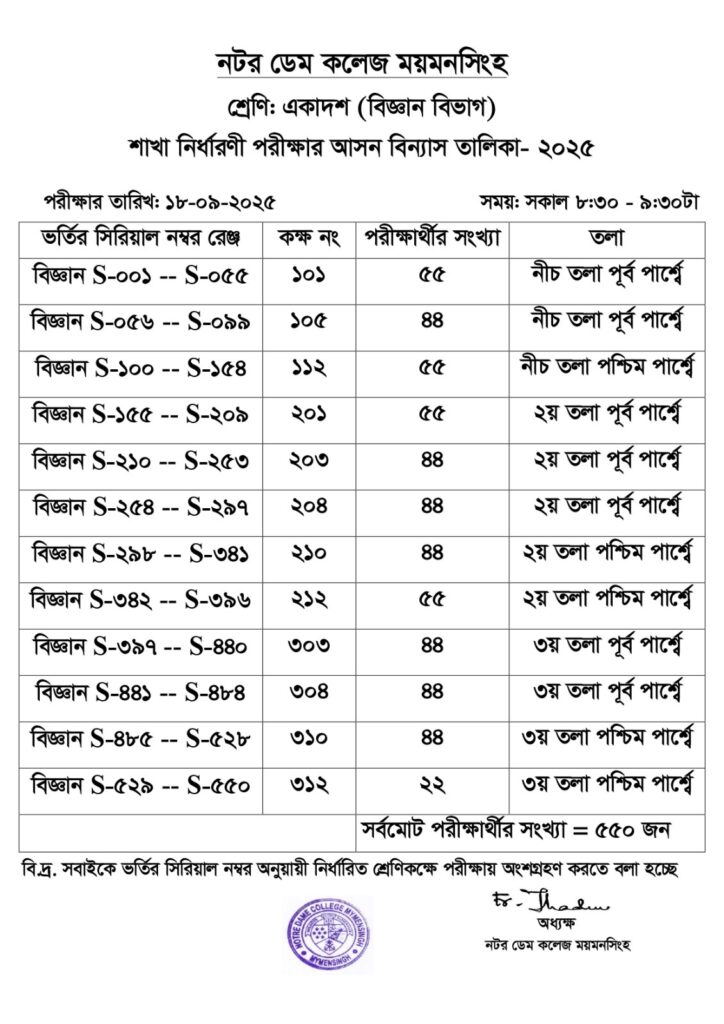 নটর ডেম কলেজ ময়মনসিংহ
শ্রেণি: একাদশ (বিজ্ঞান বিভাগ)
শাখা নির্ধারণী পরীক্ষার আসন বিন্যাস তালিকা- ২০২৫
পরীক্ষার তারিখ: ১৮-০৯-২০২৫ সময়: সকাল ৮:৩০ - ৯:৩০টা
ভর্তির সিরিয়াল নম্বর রেঞ্জ কক্ষ নং পরীক্ষার্থীর সংখ্যা তলা
বিজ্ঞান S-০০১ -- S-০৫৫ ১০১ ৫৫ নীচ তলা পূর্ব পার্শ্বে
বিজ্ঞান S-০৫৬ -- S-০৯৯ ১০৫ ৪৪ নীচ তলা পূর্ব পার্শ্বে
বিজ্ঞান S-১০০ -- S-১৫৪ ১১২ ৫৫ নীচ তলা পশ্চিম পার্শ্বে
বিজ্ঞান S-১৫৫ -- S-২০৯ ২০১ ৫৫ ২য় তলা পূর্ব পার্শ্বে
বিজ্ঞান S-২১০ -- S-২৫৩ ২০৩ ৪৪ ২য় তলা পূর্ব পার্শ্বে
বিজ্ঞান S-২৫৪ -- S-২৯৭ ২০৪ ৪৪ ২য় তলা পূর্ব পার্শ্বে
বিজ্ঞান S-২৯৮ -- S-৩৪১ ২১০ ৪৪ ২য় তলা পশ্চিম পার্শ্বে
বিজ্ঞান S-৩৪২ -- S-৩৯৬ ২১২ ৫৫ ২য় তলা পশ্চিম পার্শ্বে
বিজ্ঞান S-৩৯৭ -- S-৪৪০ ৩০৩ ৪৪ ৩য় তলা পূর্ব পার্শ্বে
বিজ্ঞান S-৪৪১ -- S-৪৮৪ ৩০৪ ৪৪ ৩য় তলা পূর্ব পার্শ্বে
বিজ্ঞান S-৪৮৫ -- S-৫২৮ ৩১০ ৪৪ ৩য় তলা পশ্চিম পার্শ্বে
বিজ্ঞান S-৫২৯ -- S-৫৫০ ৩১২ ২২ ৩য় তলা পশ্চিম পার্শ্বে
সর্বমোট পরীক্ষার্থীর সংখ্যা = ৫৫০ জন
বি.দ্র. সবাইকে ভর্তির সিরিয়াল নম্বর অনুয়ায়ী নির্ধারিত শ্রেণিকক্ষে পরীক্ষায় অংশগ্রহণ করতে বলা হচ্ছে
NOTRE DAME COLLEGE MYMENSINGH
MYMENSINGH
অধ্যক্ষ
নটর ডেম কলেজ ময়মনসিংহ